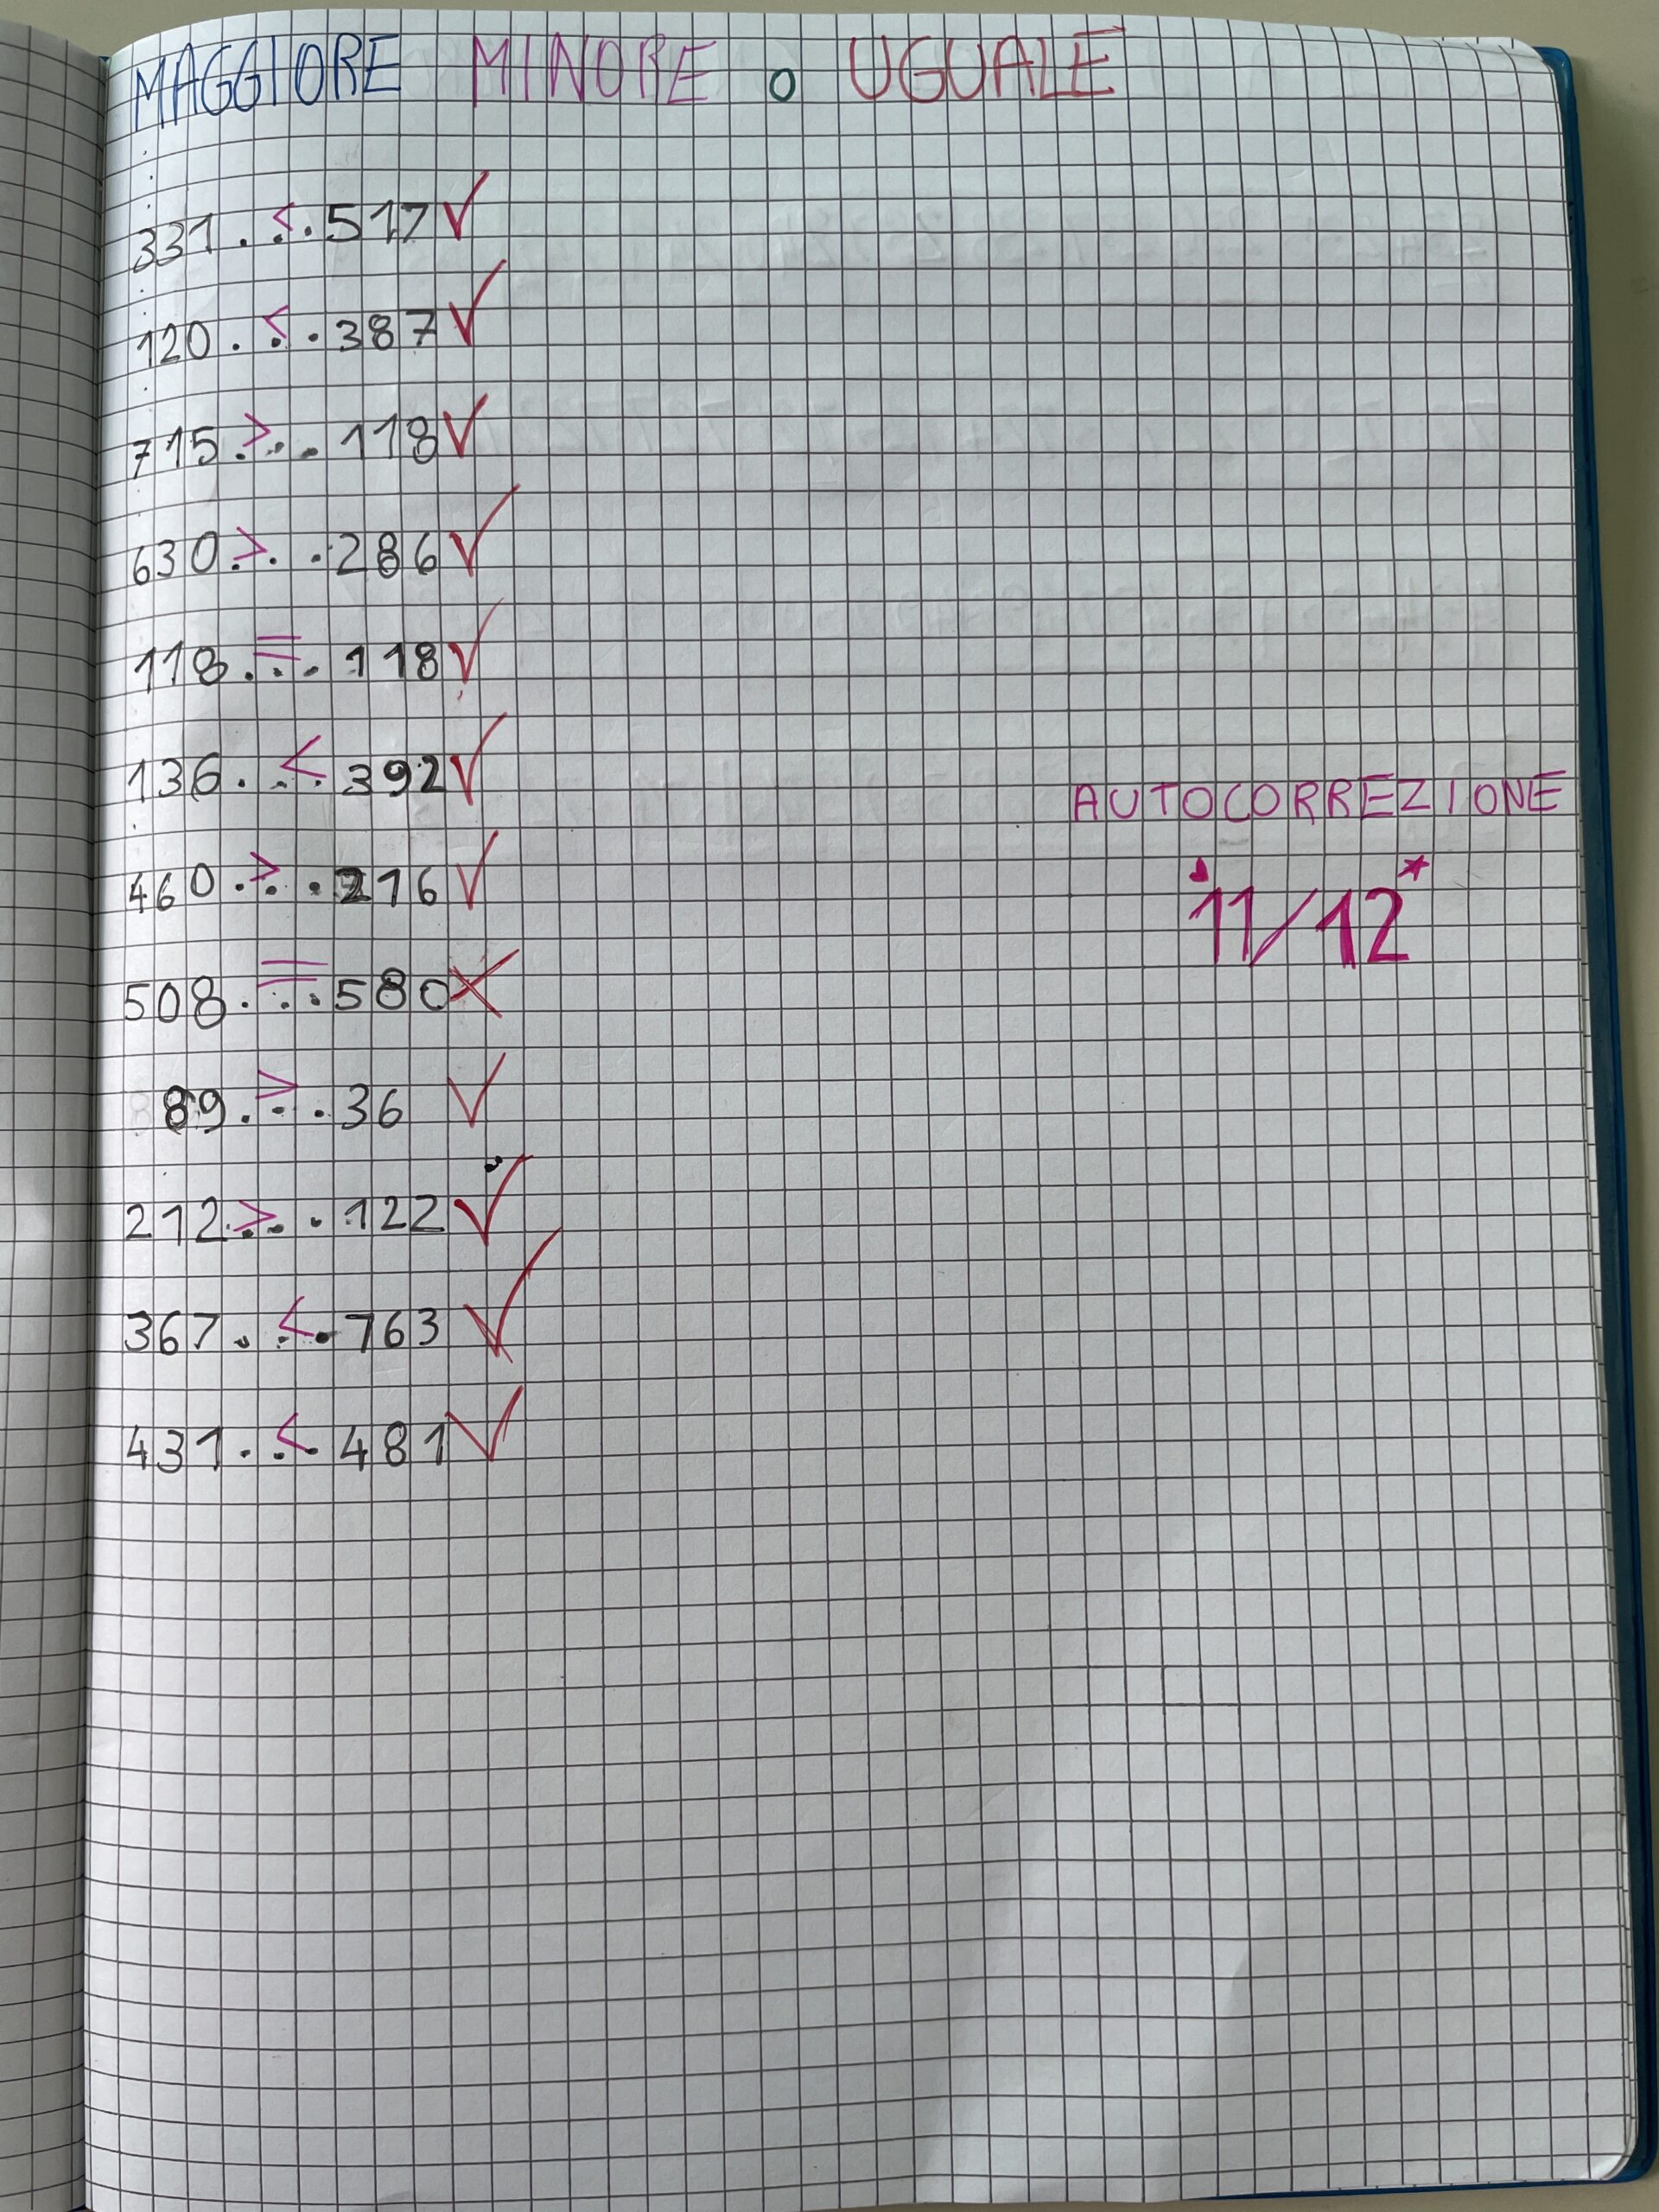 MAGGIORE MINORE o UGUALE
331 . < . 517 ✓
120 . < . 387 ✓
715 > . . 118 ✓
630 > . . 286 ✓
118 . = . 118 ✓
136 . . < 392 ✓
AUTOCORREZIONE
460 . > . 216 ✓
11/12
508 . = . 580 ✗
89 . > . 36 ✓
212 > . . 122 ✓
367 . < . 763 ✓
431 . < . 481 ✓